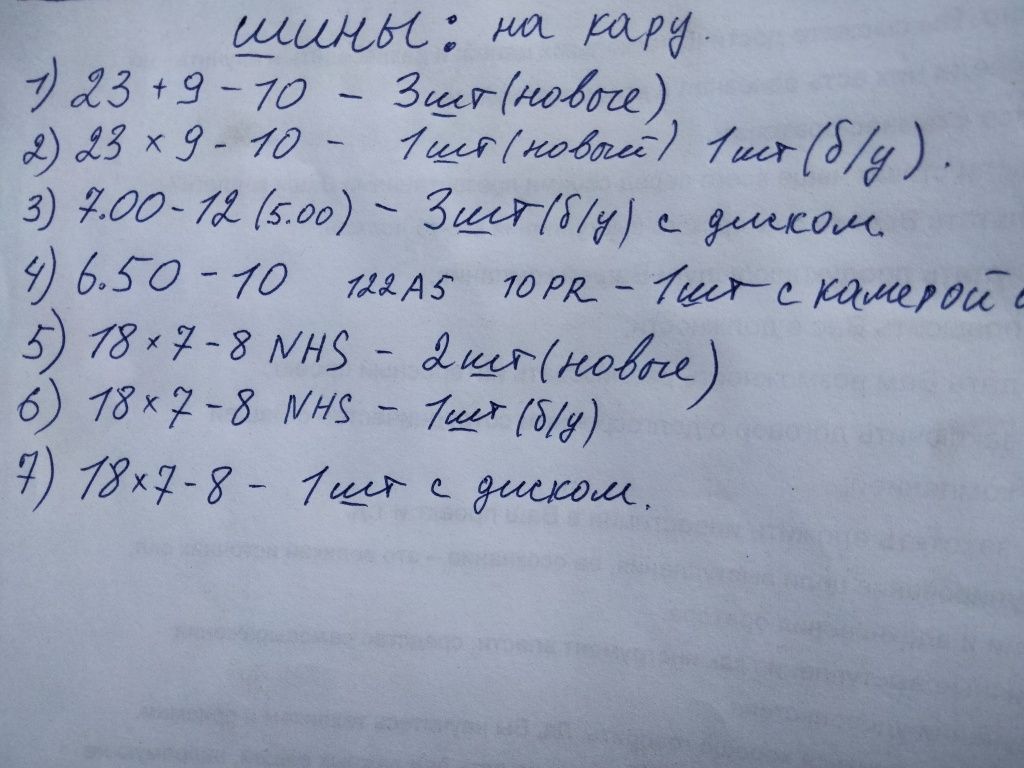 шины: на кару.
1) 23 + 9 - 10 - 3шт (новые)
2) 23 × 9 - 10 - 1шт (новый) 1шт (б/у).
3) 7.00 - 12 (5.00) - 3шт (б/у) с диском.
4) 6.50 - 10 122A5 10PR - 1шт с камерой
5) 18 × 7 - 8 NHS - 2шт (новые)
6) 18 × 7 - 8 NHS - 1шт (б/у)
7) 18 × 7 - 8 - 1шт с диском.